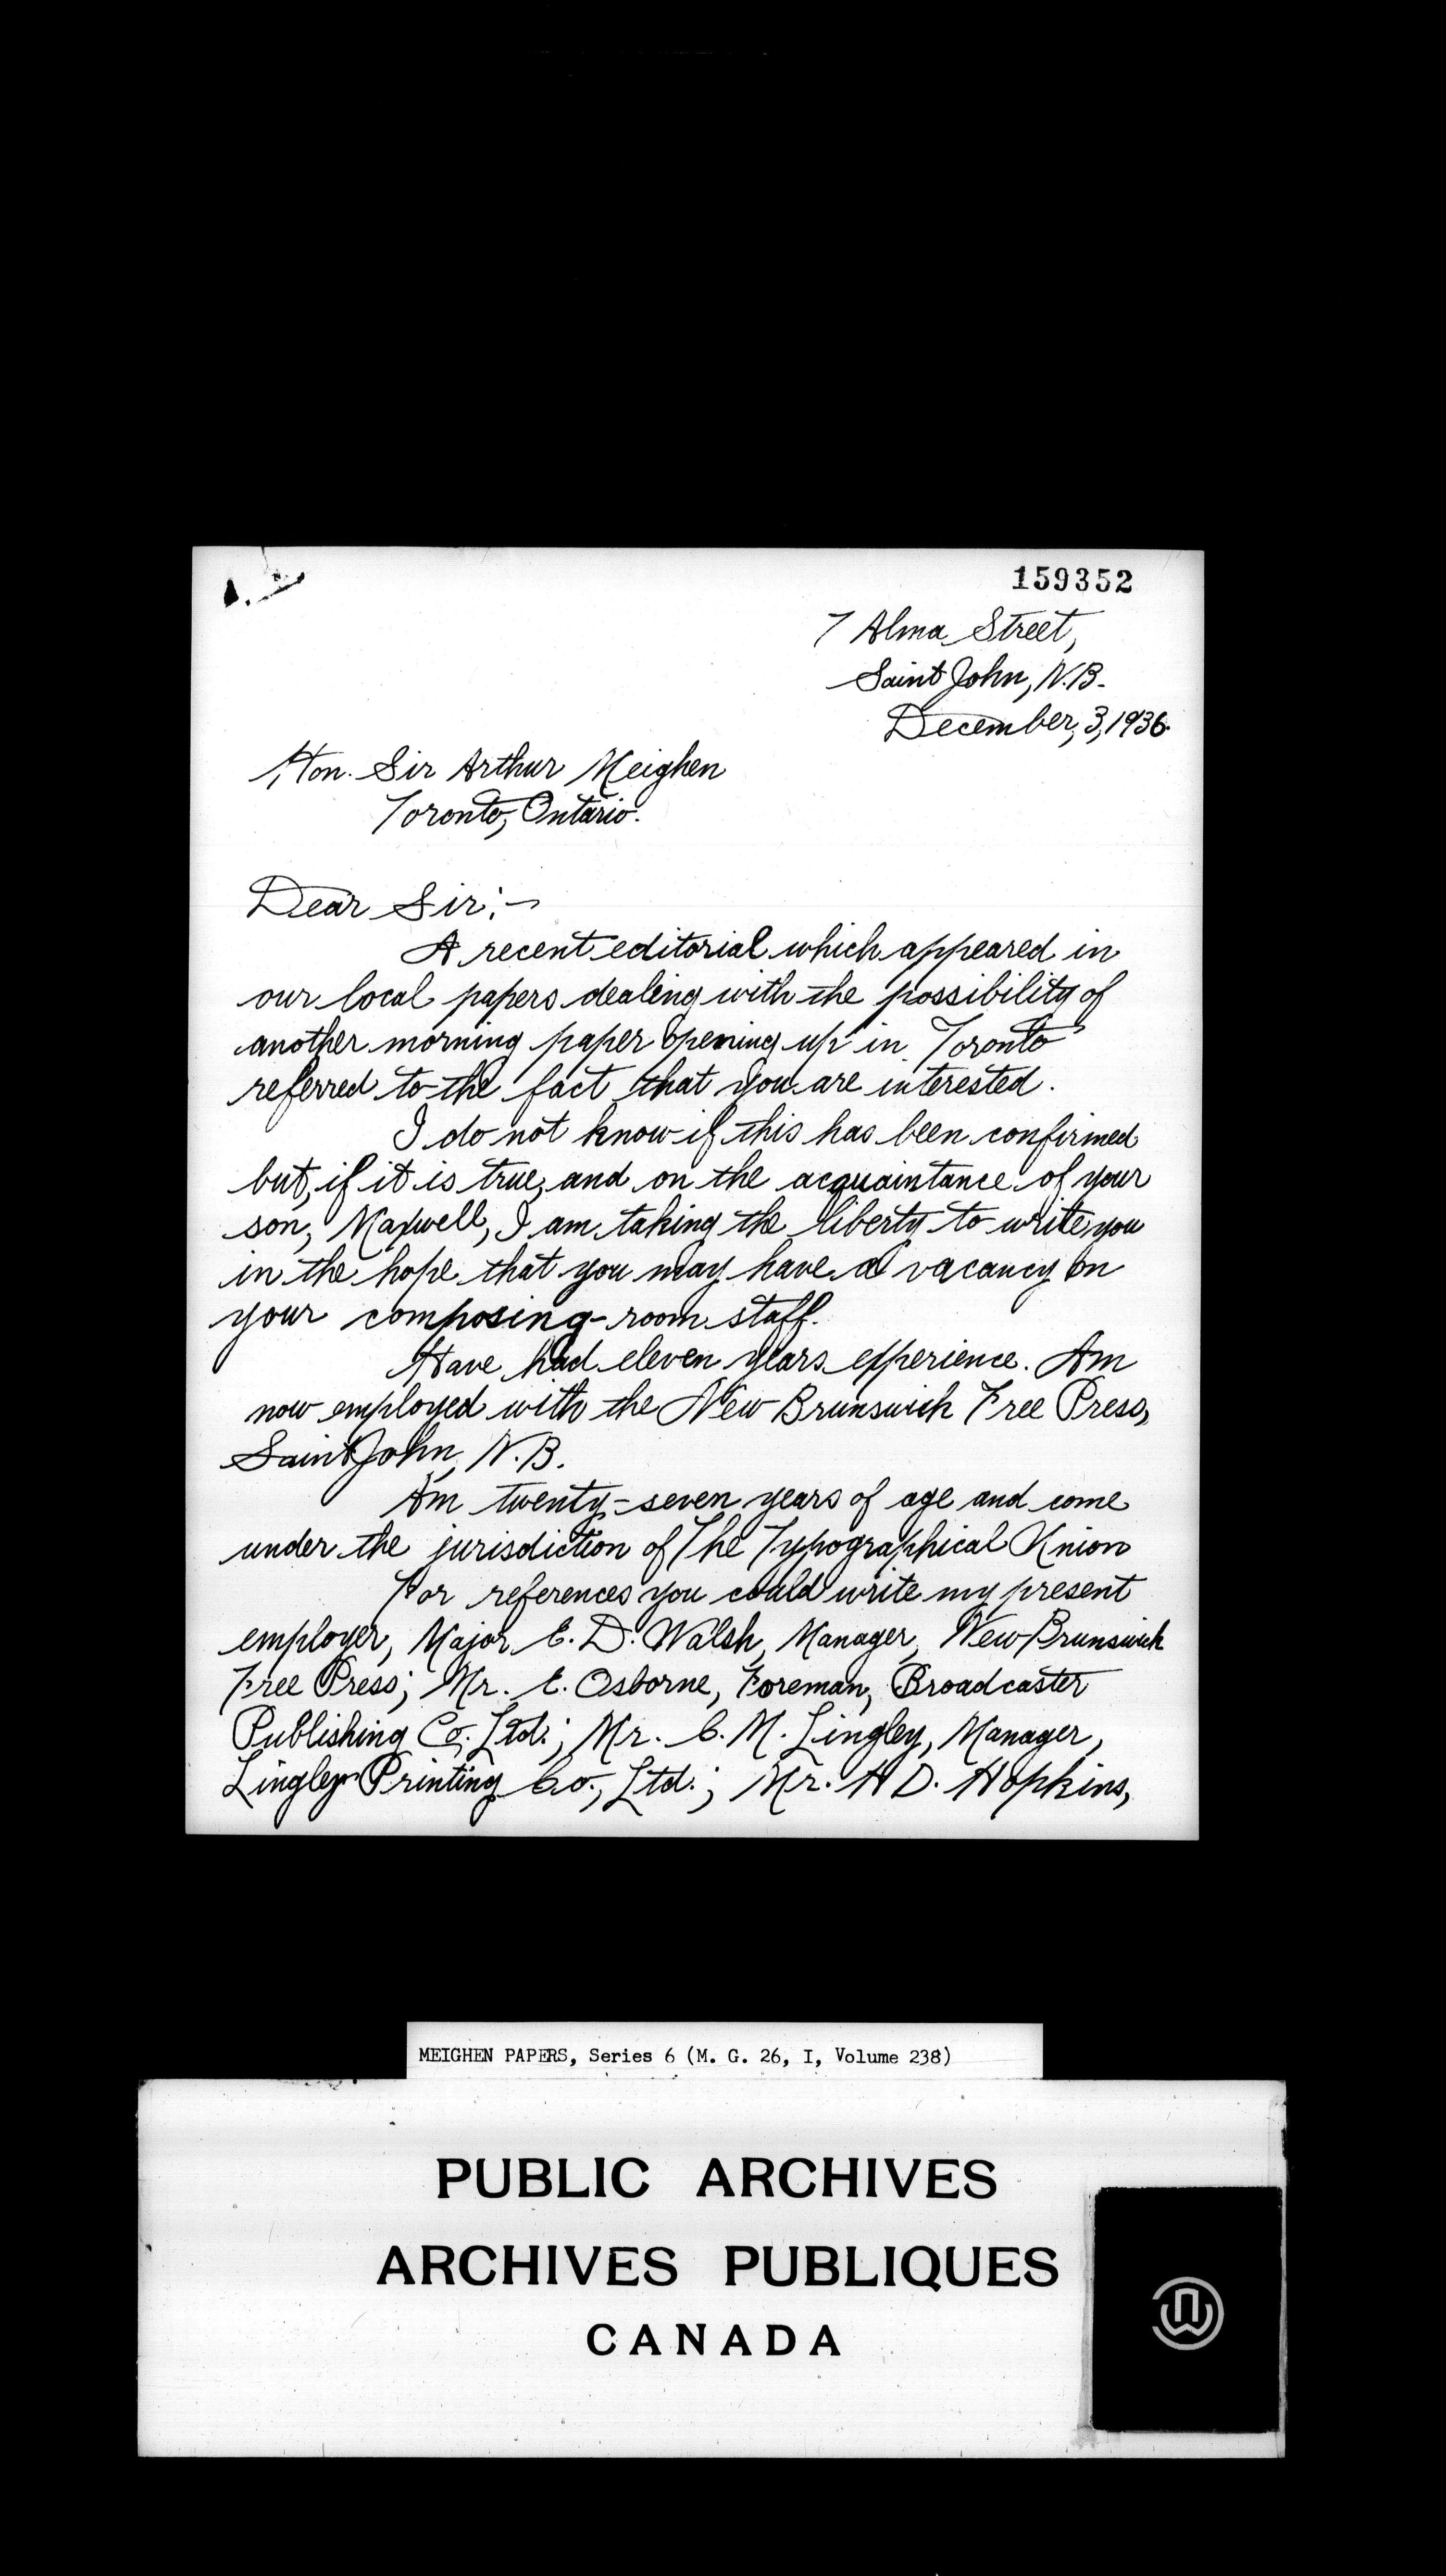 159352
7 Alma Street,
Saint John, N.B.
December, 3, 1936.
Hon. Sir Arthur Meighen
Toronto, Ontario.
Dear Sir:-
A recent editorial which appeared in
our local papers dealing with the possibility of
another morning paper opening up in Toronto
referred to the fact that you are interested.
I do not know if this has been confirmed
but, if it is true, and on the acquaintance of your
son, Maxwell, I am taking the liberty to write you
in the hope that you may have a vacancy on
your composing-room staff.
Have had eleven years experience. Am
now employed with the New Brunswick Free Press,
Saint John, N.B.
Am twenty-seven years of age and come
under the jurisdiction of The Typographical Union
For references you could write my present
employer, Major E. D. Walsh, Manager, New Brunswick
Free Press; Mr. E. Osborne, Foreman, Broadcaster
Publishing Co. Ltd.; Mr. C. M. Lingley, Manager,
Lingley Printing Co., Ltd.; Mr. H D. Hopkins,
MEIGHEN PAPERS, Series 6 (M. G. 26, I, Volume 238)
PUBLIC ARCHIVES
ARCHIVES PUBLIQUES
CANADA